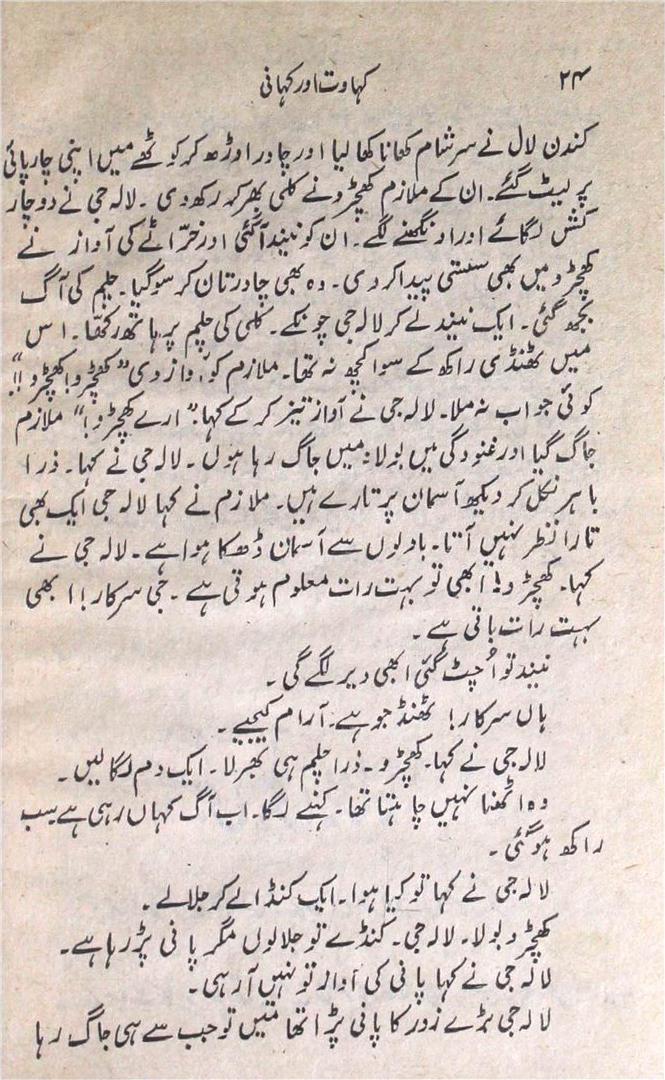 ۲۴ کہاوت اور کہانی
کندن لال نے سرشام کھانا کھا لیا اور چادر اوڑھ کر کوٹھے میں اپنی چارپائی
پر لیٹ گئے۔ ان کے ملازم کھچڑو نے کلی بھر کر رکھ دی ۔ لالہ جی نے دو چار
کش لگائے اور اونگھنے لگے۔ ان کو نیند آگئی اور خرّاٹے کی آواز نے
کھچڑو میں بھی سستی پیدا کر دی ۔ وہ بھی چادر تان کر سوگیا۔ چلم کی آگ
بجھ گئی ۔ ایک نیند لے کر لالہ جی چونکے۔ کلی کی چلم پر ہاتھ رکھّا ۔ اس
میں ٹھنڈی راکھ کے سوا کچھ نہ تھا۔ ملازم کو آواز دی ”کھچڑو! کھچڑو!!“
کوئی جواب نہ ملا۔ لالہ جی نے آواز تیز کر کے کہا: ”ارے کھچڑو!“ ملازم
جاگ گیا اور غنودگی میں بولا: میں جاگ رہا ہوں ۔ لالہ جی نے کہا ۔ ذرا
باہر نکل کر دیکھ آسمان پر تارے ہیں۔ ملازم نے کہا لالہ جی ایک بھی
تارا نظر نہیں آتا۔ بادلوں سے آسمان ڈھکا ہوا ہے ۔ لالہ جی نے
کہا ۔ کھچڑو! ابھی تو بہت رات معلوم ہوتی ہے ۔ جی سرکار! ابھی
بہت رات باقی ہے ۔
نیند تو اُچٹ گئی ابھی دیر لگے گی ۔
ہاں سرکار! ٹھنڈ جو ہے۔ آرام کیجیے ۔
لالہ جی نے کہا۔ کھچڑو ۔ ذرا چلم ہی بھر لا ۔ ایک دم لگالیں ۔
وہ اٹھنا نہیں چاہتا تھا۔ کہنے لگا۔ اب آگ کہاں رہی ہے سب
راکھ ہوگئی ۔
لالہ جی نے کہا تو کیا ہوا۔ ایک کنڈا لے کر جلالے ۔
کھچڑو بولا۔ لالہ جی۔ کنڈے تو جلا لوں مگر پانی پڑ رہا ہے ۔
لالہ جی نے کہا پانی کی آواز تو نہیں آرہی ۔
لالہ جی بڑے زور کا پانی پڑا تھا میں تو جب سے ہی جاگ رہا